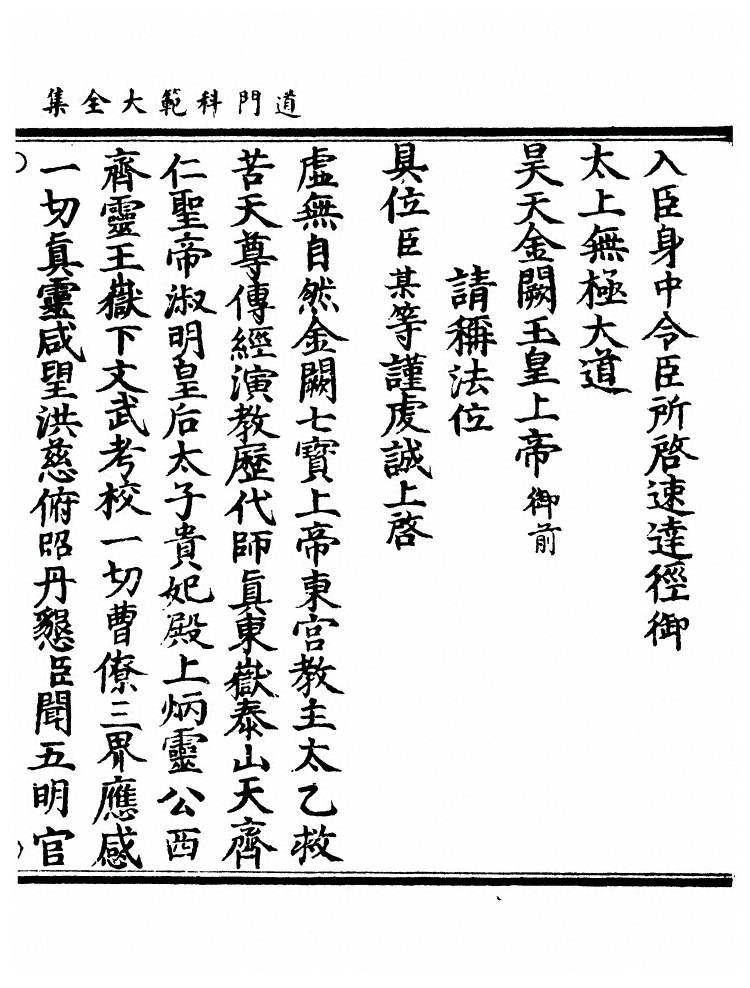 道門科範大全集
入臣身中令臣所啓速達徑御
太上無極大道
昊天金闕玉皇上帝御前
請稱法位
具位臣某等謹虔誠上啓
虛無自然金闕七寶上帝東宮教主太乙救
苦天尊傳經演教歷代師眞東嶽泰山天齊
仁聖帝淑明皇后太子貴妃殿上炳靈公西
齊靈王嶽下文武考校一切曹僚三界應感
一切眞靈咸望洪慈俯昭丹懇臣聞五明官